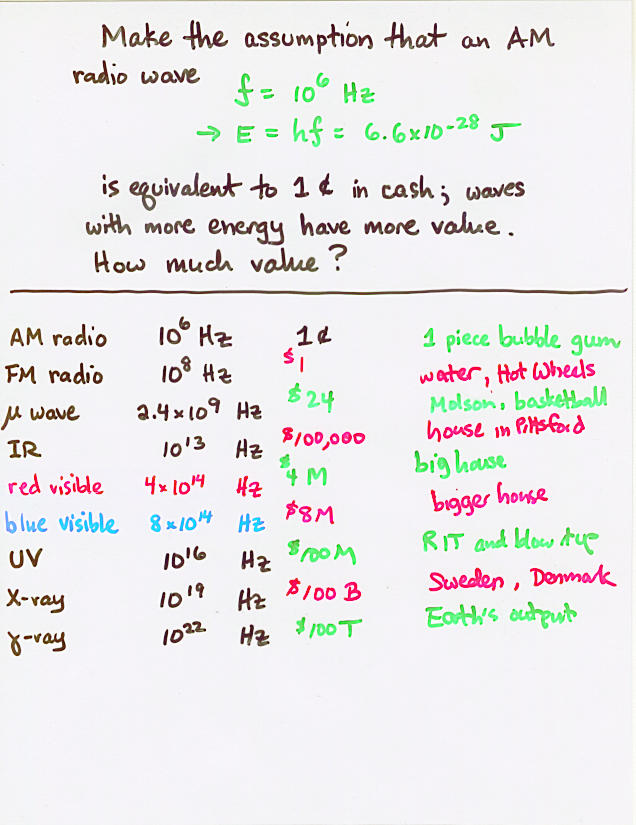 Make the assumption that an AM
radio wave
f = 10⁶ Hz
→ E = hf = 6.6x10⁻²⁸ J
is equivalent to 1 ¢ in cash; waves
with more energy have more value.
How much value?
AM radio 10⁶ Hz 1¢ 1 piece bubble gum
FM radio 10⁸ Hz $1 water, Hot Wheels
μ wave 2.4x10⁹ Hz $24 Molson, basketball
IR 10¹³ Hz $100,000 house in Pittsford
red visible 4x10¹⁴ Hz $4 M big house
blue visible 8x10¹⁴ Hz $8M bigger house
UV 10¹⁶ Hz $100M RIT and blow it up
X-ray 10¹⁹ Hz $100 B Sweden, Denmark
γ-ray 10²² Hz $100T Earth's output